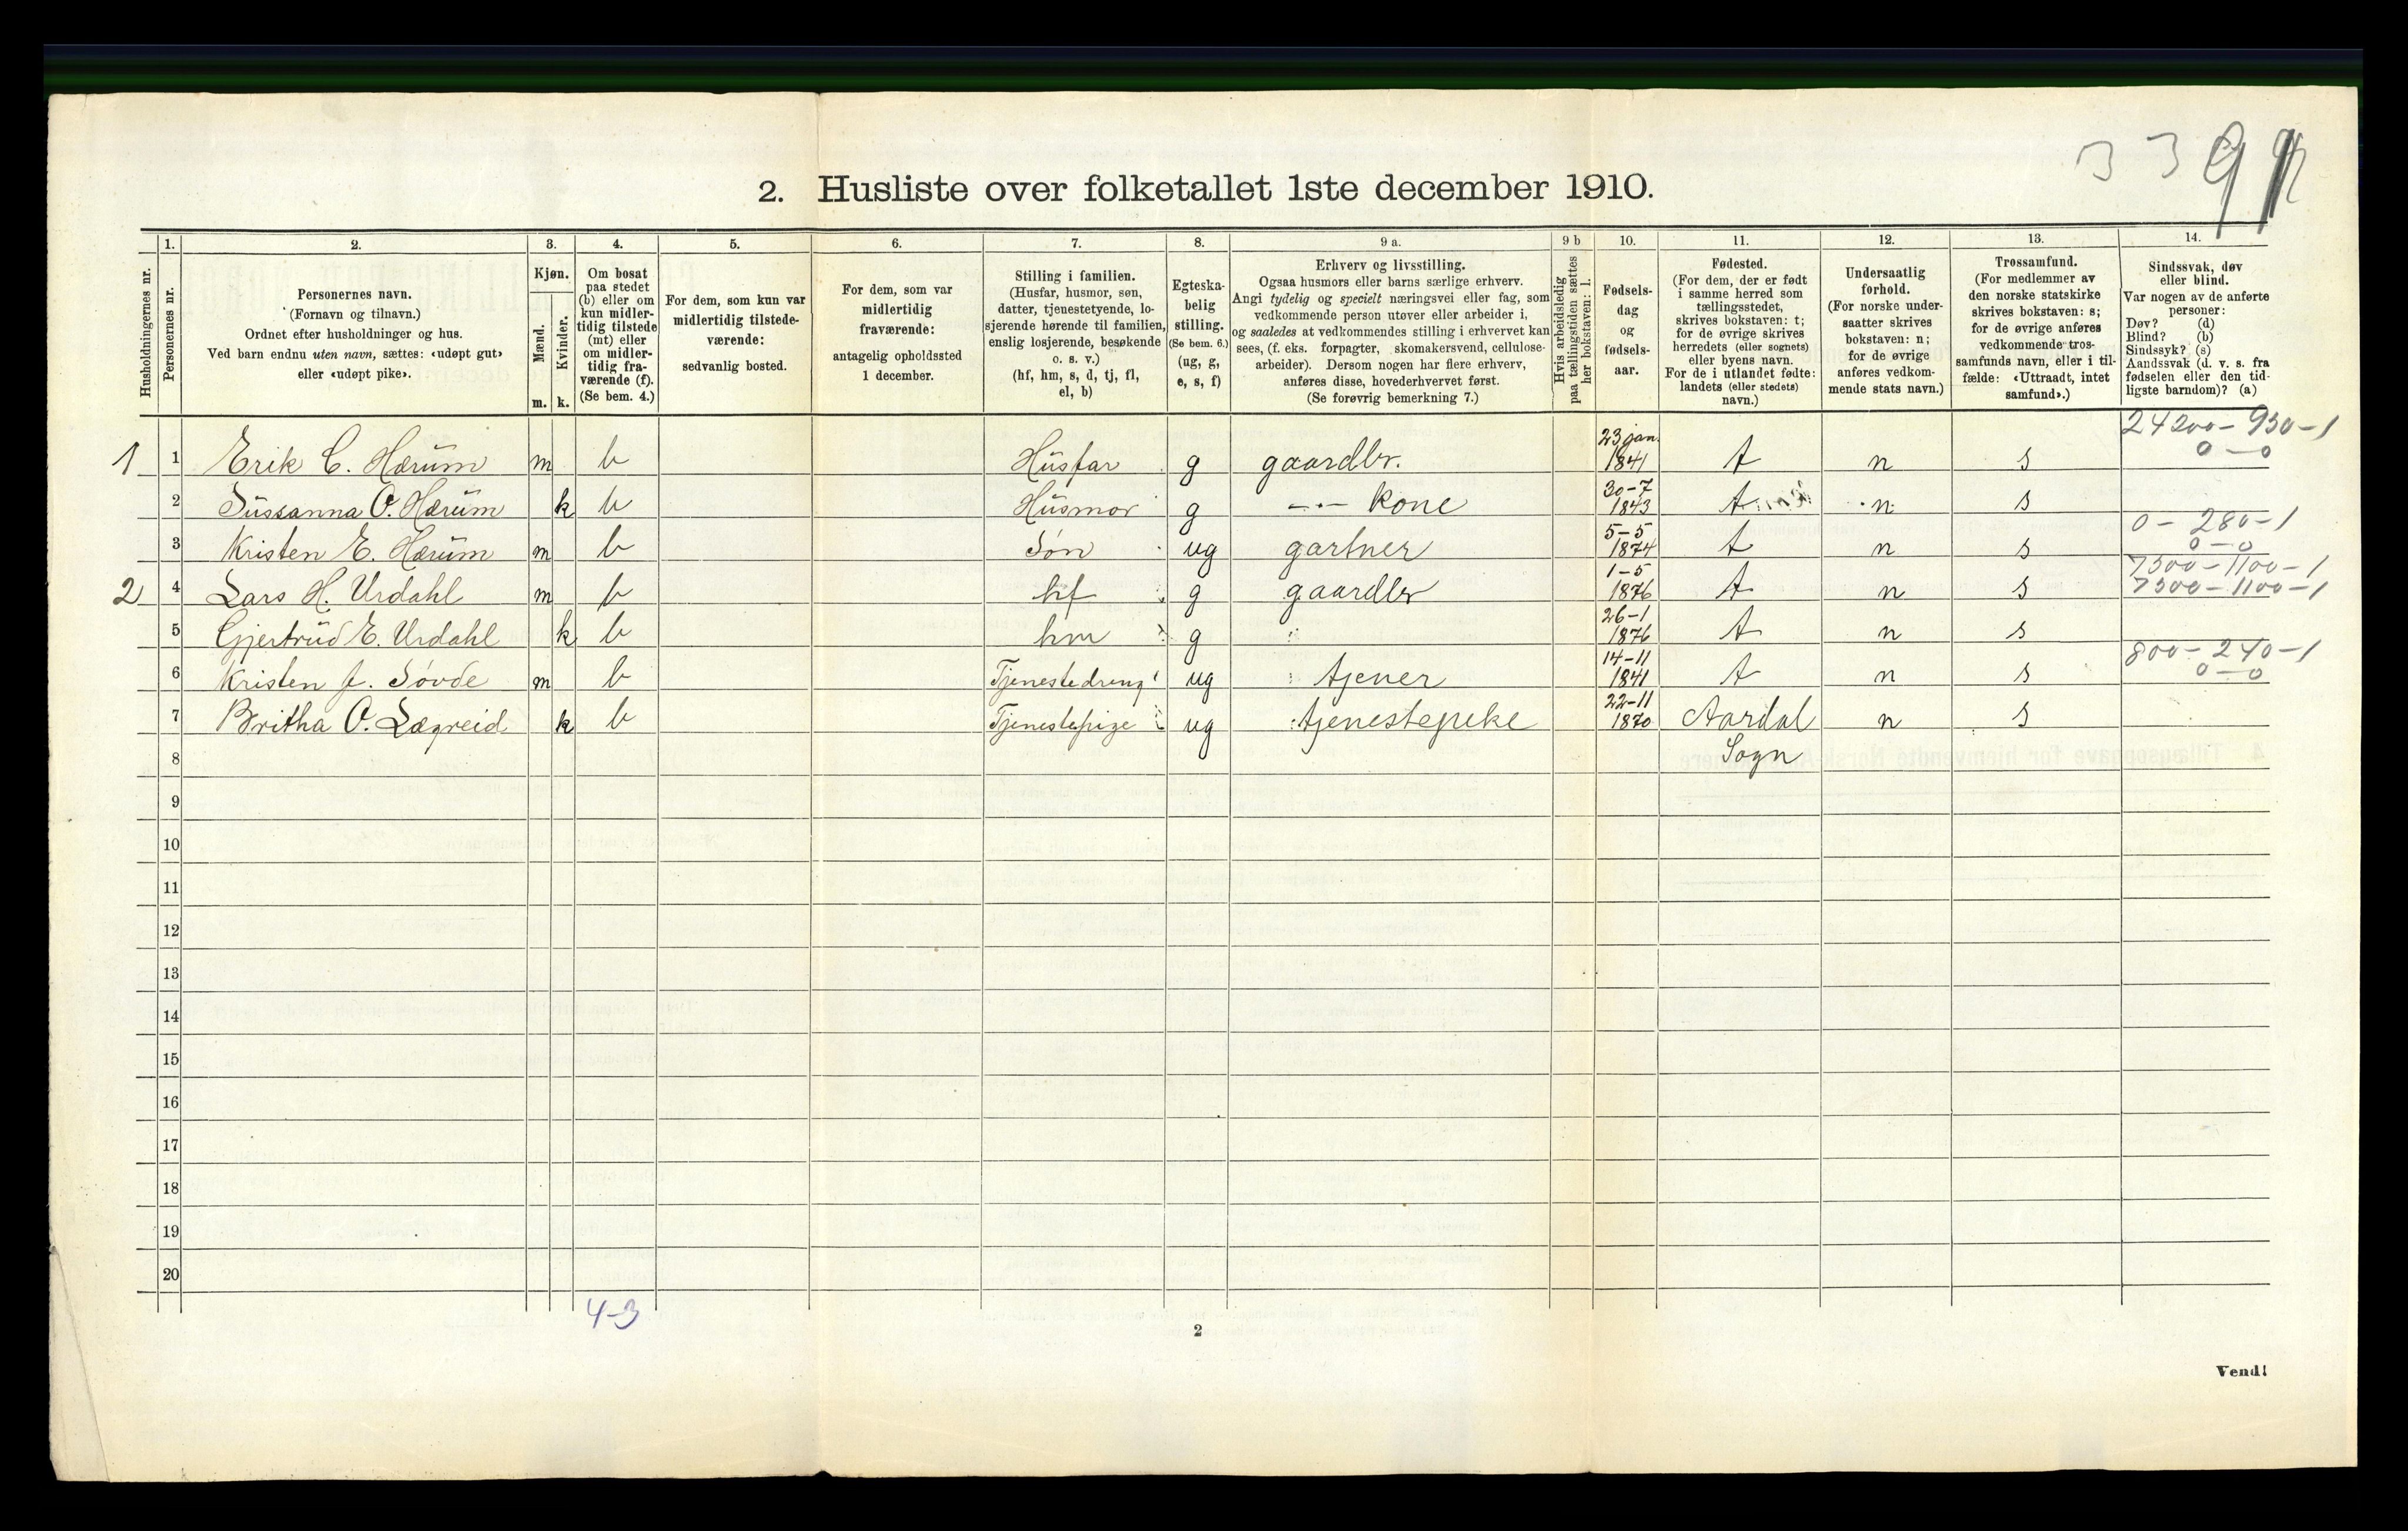 3399
2. Husliste over folketallet 1ste december 1910.
1. 2. 3. 4. 5. 6. 7. 8. 9 a. 9 b 10. 11. 12. 13. 14.
Husholdningernes nr.
Personernes nr.
Personernes navn.
(Fornavn og tilnavn.)
Ordnet efter husholdninger og hus.
Ved barn endnu uten navn, sættes: «udøpt gut»
eller «udøpt pike».
Kjøn.
Mænd.
Kvinder.
m. k.
Om bosat
paa stedet
(b) eller om
kun midler-
tidig tilstede
(mt) eller
om midler-
tidig fra-
værende (f).
(Se bem. 4.)
For dem, som kun var
midlertidig tilstede-
værende:
sedvanlig bosted.
For dem, som var
midlertidig
fraværende:
antagelig opholdssted
1 december.
Stilling i familien.
(Husfar, husmor, søn,
datter, tjenestetyende, lo-
sjerende hørende til familien,
enslig losjerende, besøkende
o. s. v.)
(hf, hm, s, d, tj, fl,
el, b)
Egteska-
belig
stilling.
(Se bem. 6.)
(ug, g,
e, s, f)
Erhverv og livsstilling.
Ogsaa husmors eller barns særlige erhverv.
Angi tydelig og specielt næringsvei eller fag, som
vedkommende person utøver eller arbeider i,
og saaledes at vedkommendes stilling i erhvervet kan
sees, (f. eks. forpagter, skomakersvend, cellulose-
arbeider). Dersom nogen har flere erhverv,
anføres disse, hovederhvervet først.
(Se forøvrig bemerkning 7.)
Hvis arbeidsledig
paa tællingstiden sættes
her bokstaven: l.
Fødsels-
dag
og
fødsels-
aar.
Fødested.
(For dem, der er født
i samme herred som
tællingsstedet,
skrives bokstaven: t;
for de øvrige skrives
herredets (eller sognets)
eller byens navn.
For de i utlandet fødte:
landets (eller stedets)
navn.)
Undersaatlig
forhold.
(For norske under-
saatter skrives
bokstaven: n;
for de øvrige
anføres vedkom-
mende stats navn.)
Trossamfund.
(For medlemmer av
den norske statskirke
skrives bokstaven: s;
for de øvrige anføres
vedkommende tros-
samfunds navn, eller i til-
fælde: «Uttraadt, intet
samfund».)
Sindssvak, døv
eller blind.
Var nogen av de anførte
personer:
Døv? (d)
Blind? (b)
Sindssyk? (s)
Aandssvak (d. v. s. fra
fødselen eller den tid-
ligste barndom)? (a)
1 1 Erik C. Hærum m b Husfar g gaardbr. 23 jan. 1841 t n s 24200-930-1 0-0
2 Sussanna O. Hærum k b Husmor g -"- kone 30-7 1843 t n s
3 Kristen E. Hærum m b Søn ug gartner 5-5 1874 t n s 0-280-1 0-0
2 4 Lars H. Urdahl m b hf g gaardbr 1-5 1876 t n s 7300-1100-1 7300-1100-1
5 Gjertrud E. Urdahl k b hm g 26-1 1876 t n s
6 Kristen J. Søvde m b Tjenestedreng ug tjener 14-11 1841 t n s 800-240-1 0-0
7 Britha O. Lægreid k b Tjenestepige ug tjenestepeke 22-11 1870 Aardal n s
8 Sogn
9
10
11
12
13
14
15
16
17
18
19
20
4-3
2
Vend!